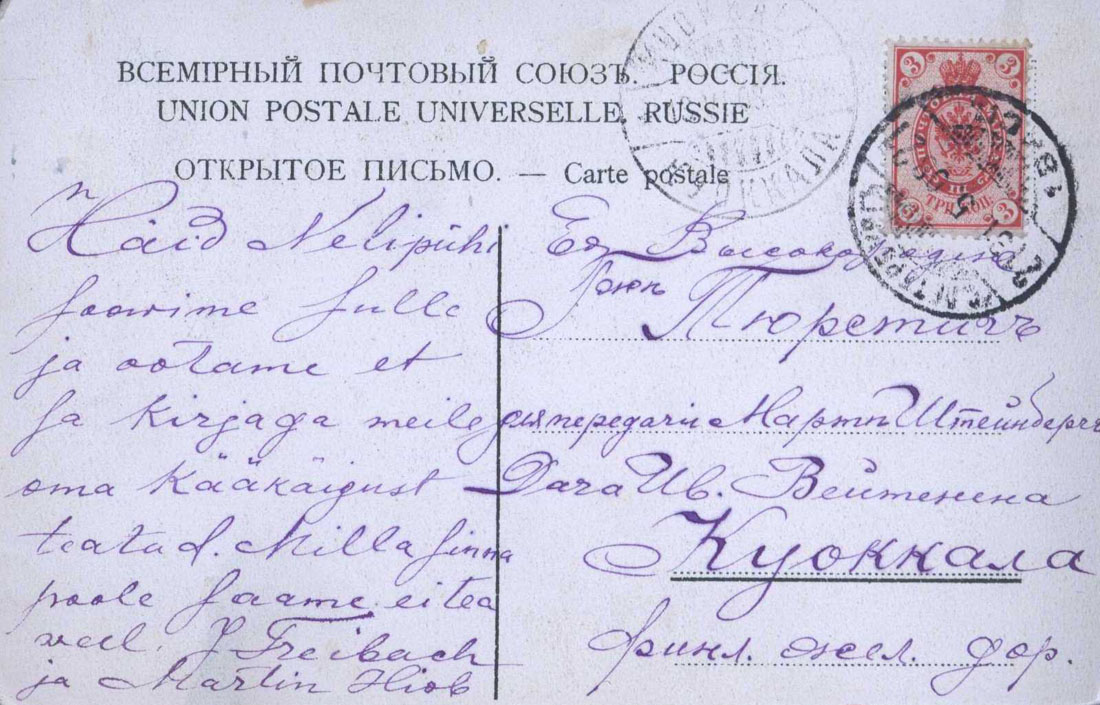 ВСЕМІРНЫЙ ПОЧТОВЫЙ СОЮЗЪ. РОССІЯ.
UNION POSTALE UNIVERSELLE. RUSSIE
ОТКРЫТОЕ ПИСЬМО. — Carte postale
3 3
3 ТРИ КОП. 3
КУОККАЛА
Häid Nelipühi
soowime sulle
ja ootame et
sa kirjaga meile
oma Kääkäigust
teatad. Milla sinna
poole saame ei tea
weel. J Freibach
ja Martin Hiob
Ея
Тюрстигъ
для передачи Марти Штейнбергъ
Дача Ив. Вейтенена
Куоккала
финл. жел. дор.